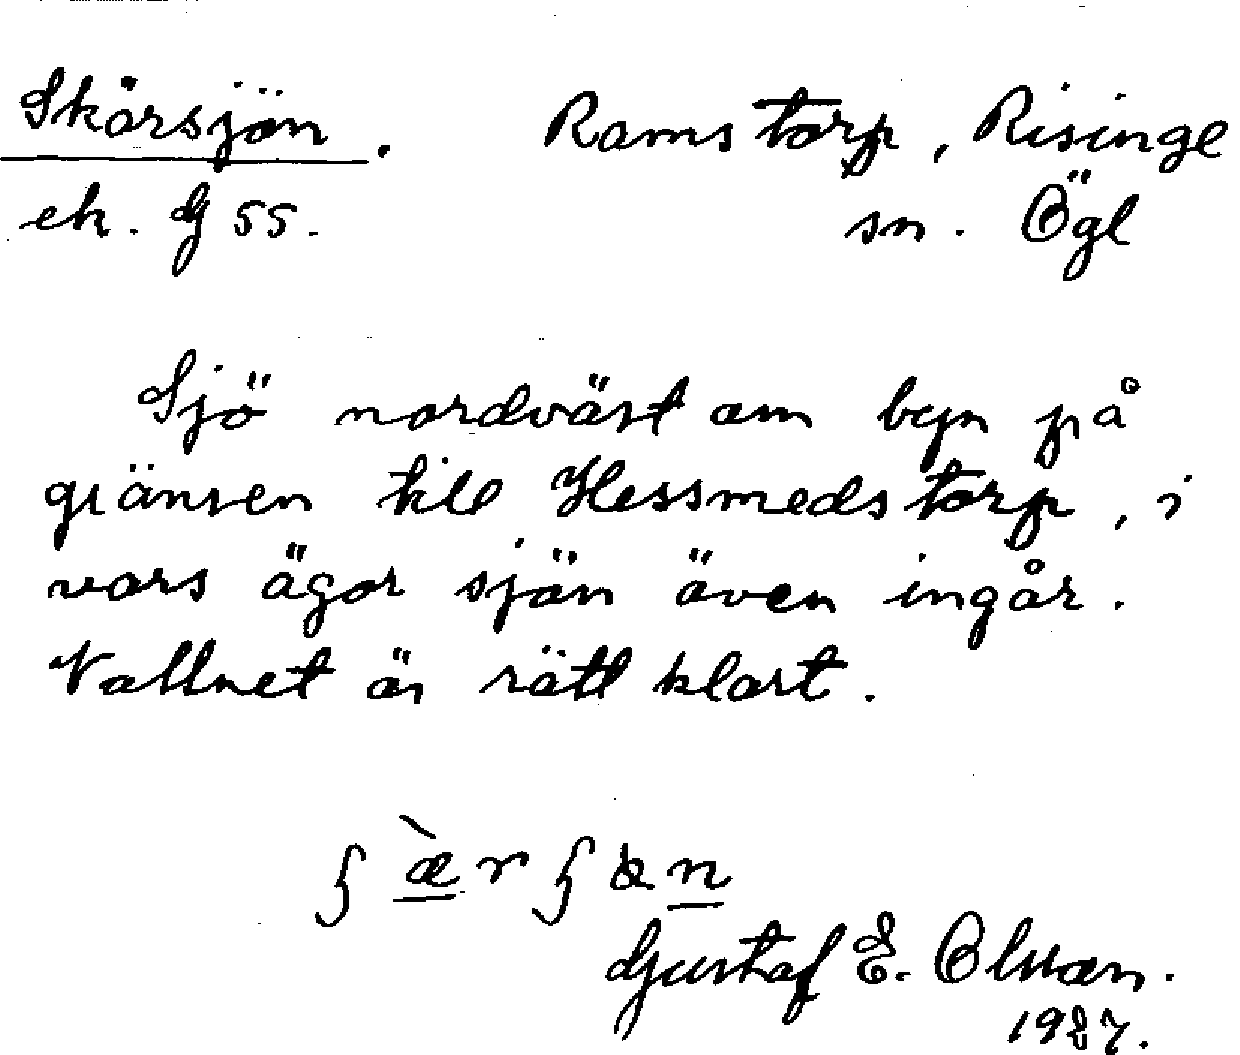 Skärsjön. Ramstorp, Risinge
ek. G 55. sn. Ögl
Sjö nordväst om byn på
gränsen till Hessmedstorp, i
vars ägor sjön även ingår.
Vattnet är rätt klart.
Gustaf E. Olsson.
1927.